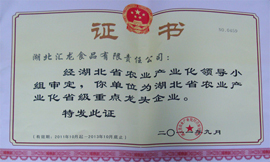 证书
湖北汇龙食品有限责任公司：
经湖北省农业产业化领导小
组审定，你单位为湖北省农业产
业化省级重点龙头企业。
特发此证
（有效期：2011年10月起—2013年10月底止）
二〇 年九月